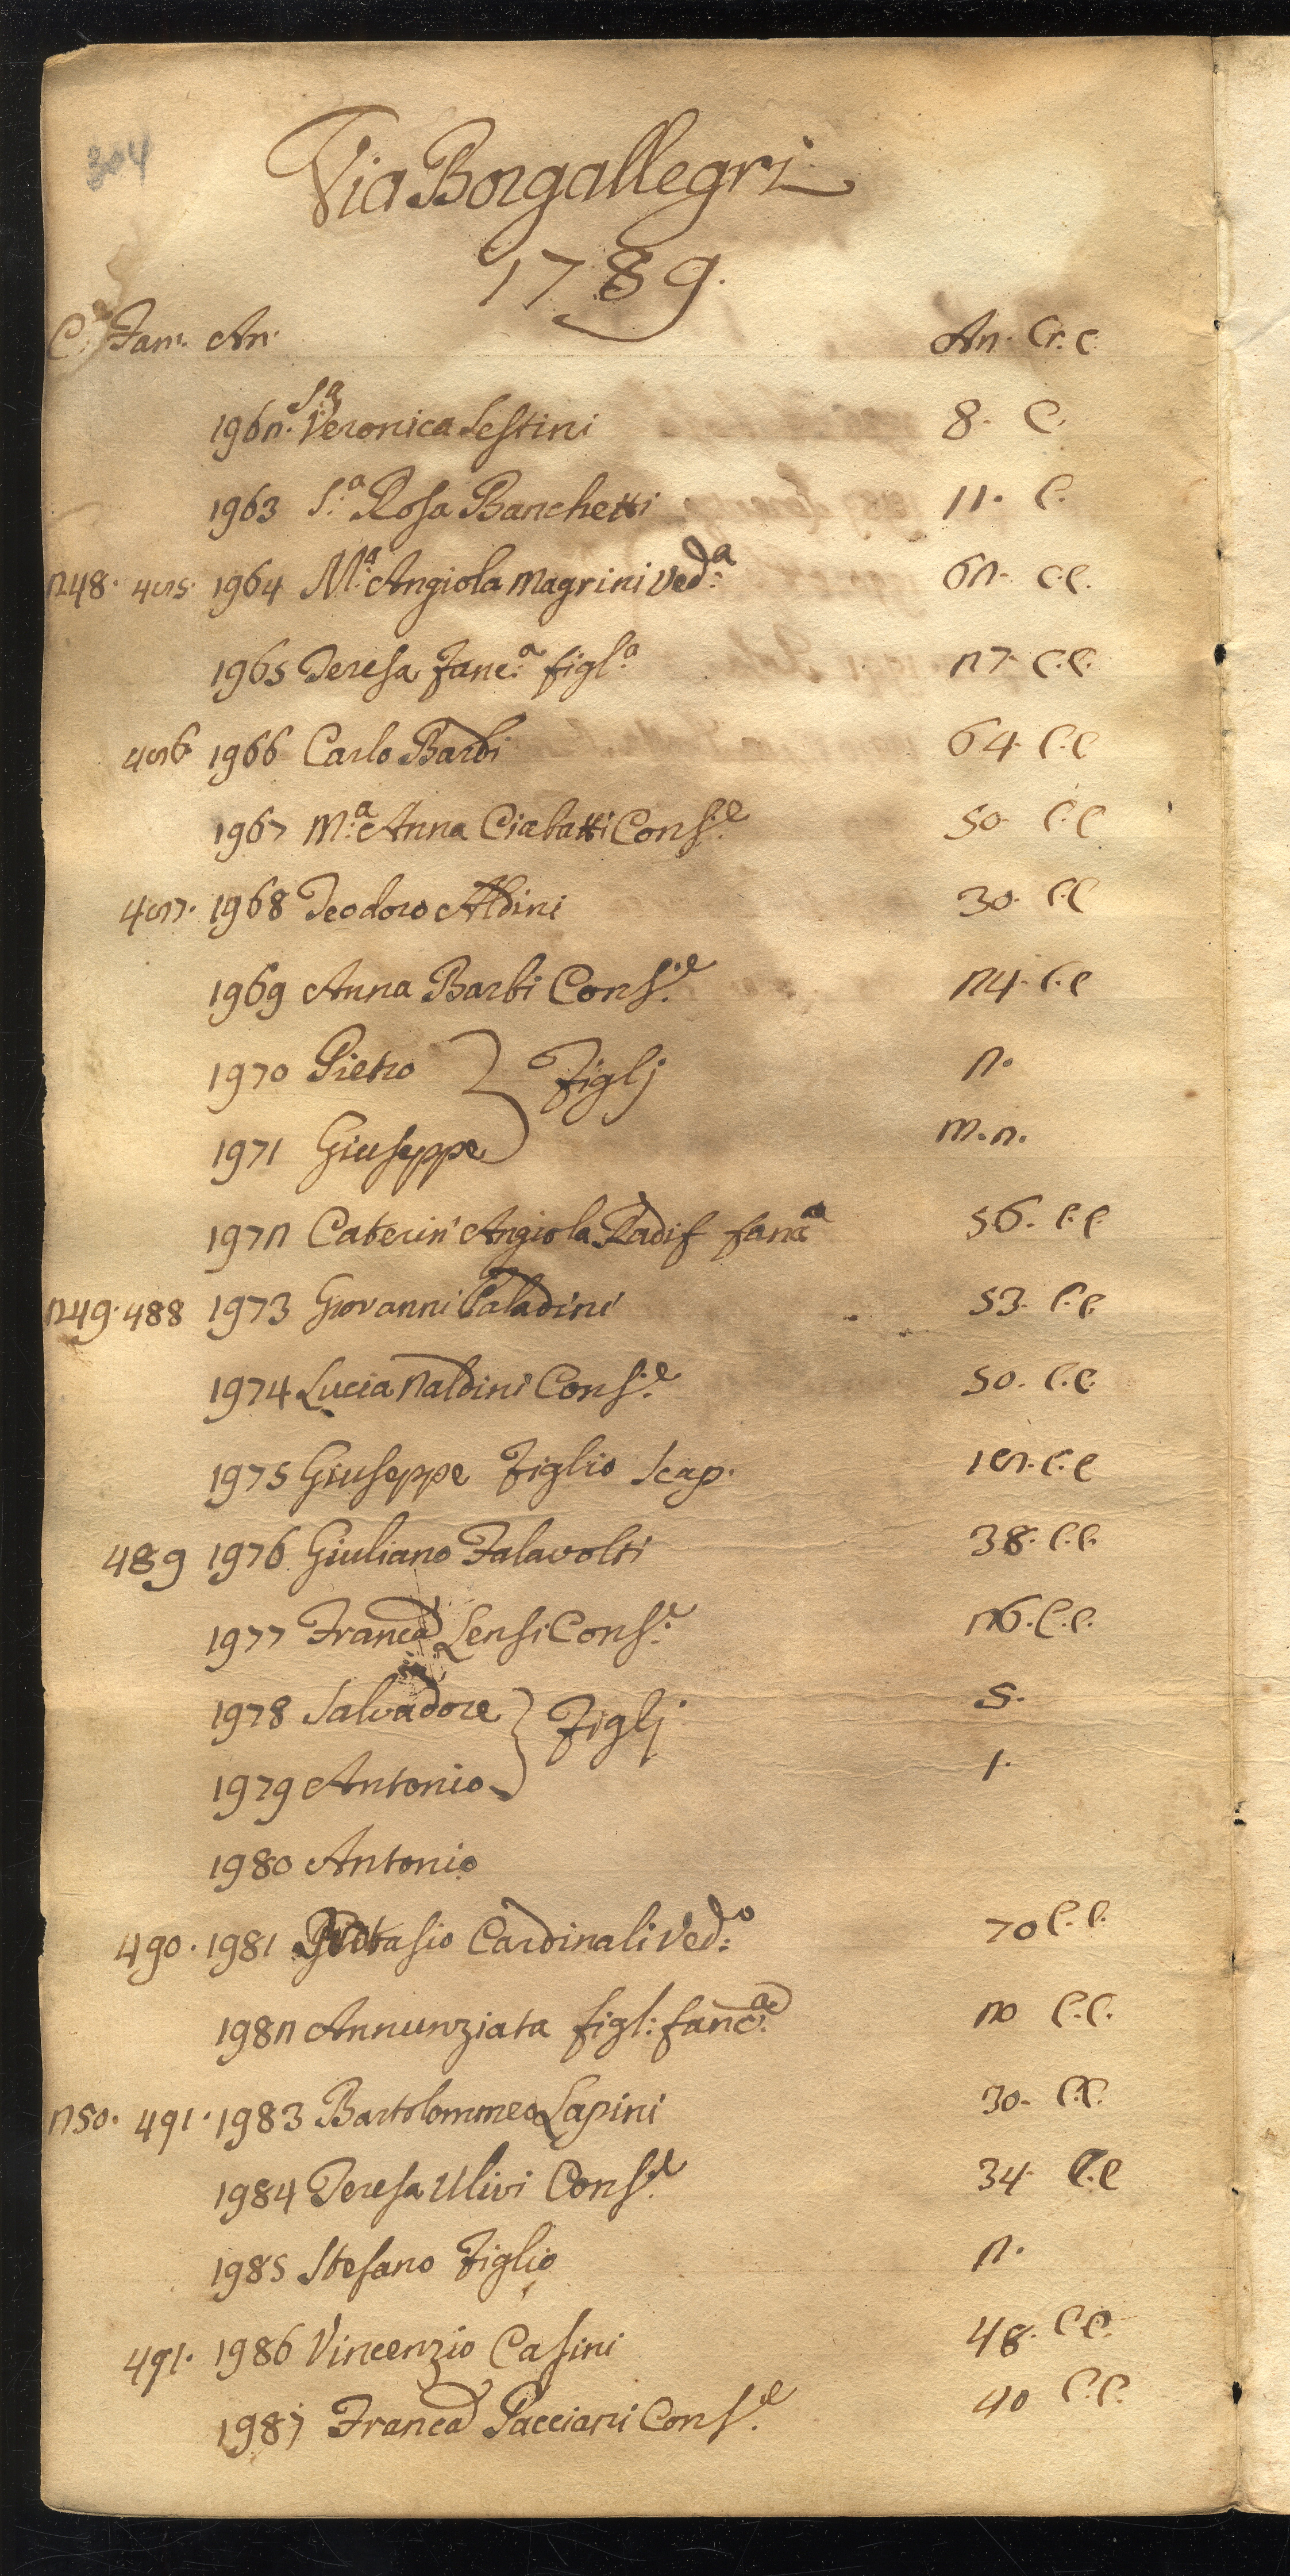 304
Via Borgallegri
1789.
C. Fam. An. An. Cr. C.
1962. S.a Veronica Sestini 8. C.
1963 S.a Rosa Banchetti 11. C.
248. 485. 1964 M.a Angiola Magrini Ved.a 62. C.C.
1965 Teresa fanc.a figl.a 27. C.C.
486 1966 Carlo Barbi 64. C.C
1967 M.a Anna Ciabatti Cons.e 50. C.C
487. 1968 Teodoro Aldini 30. C.C
1969 Anna Barbi Cons.e 24. C.C
1970 Pietro } Figlj 2.
1971 Giuseppe m. 2.
1972 Caterin' Angiola fanc.a 56. C.C
249. 488 1973 Giovanni Paladini 53. C.C.
1974 Lucia Naldini Cons.e 50. C.C.
1975 Giuseppe Figlio Scap. 18. C.C
489 1976 Giuliano Falavolti 38. C.C.
1977 Franca Lensi Cons.e 26. C.C.
1978 Salvadore } Figlj 5.
1979 Antonio 1.
1980 Antonio
490. 1981 Cardinali Ved.o 70 C.C.
1982 Annunziata figl: fanc.a 20 C.C.
250. 491. 1983 Bartolommeo Lapini 30. C.C.
1984 Teresa Ulivi Cons.e 34. C.C
1985 Stefano Figlio 2.
491. 1986 Vincenzio Casini 48. C.C.
1987 Franca Pacciani Cons.e 40 C.C.